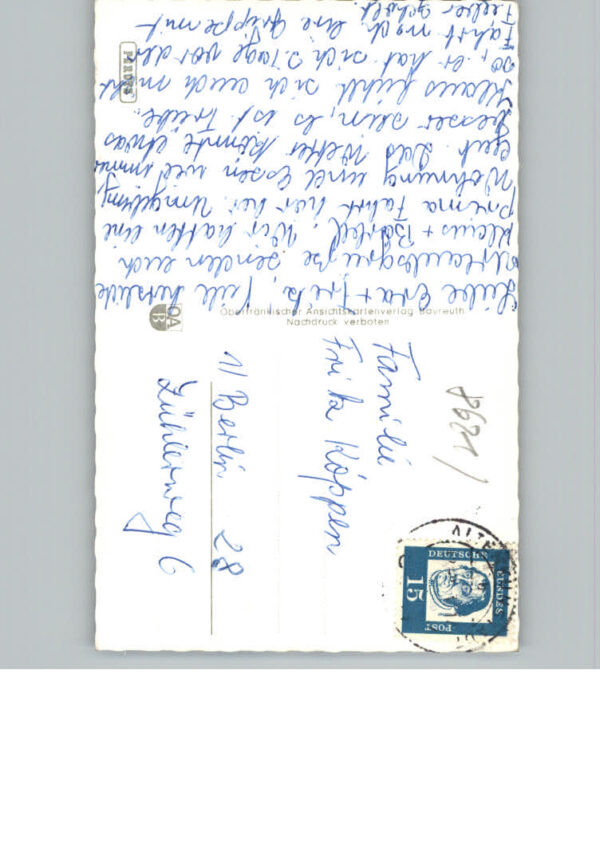 Liebe Eva + Fritz, viele herzliche
Urlaubsgrüsse senden euch
Klaus + Bärbel. Wir hatten eine
prima Fahrt hier her. Umgebung,
Wohnung und Essen sind immer
gut. Das Wetter könnte etwas
besser sein, es ist trübe.
Klaus fühlt sich auch nicht
so, er hat sich 2 Tage vor der
Fahrt noch eine Grippe mit
Fieber geholt.
OA
B
Oberfränkischer Ansichtskartenverlag Bayreuth
Nachdruck verboten
Familie
Fritz Köppen
1/ Berlin 28
Zühlerweg 6
DEUTSCHE
BUNDES
POST
15